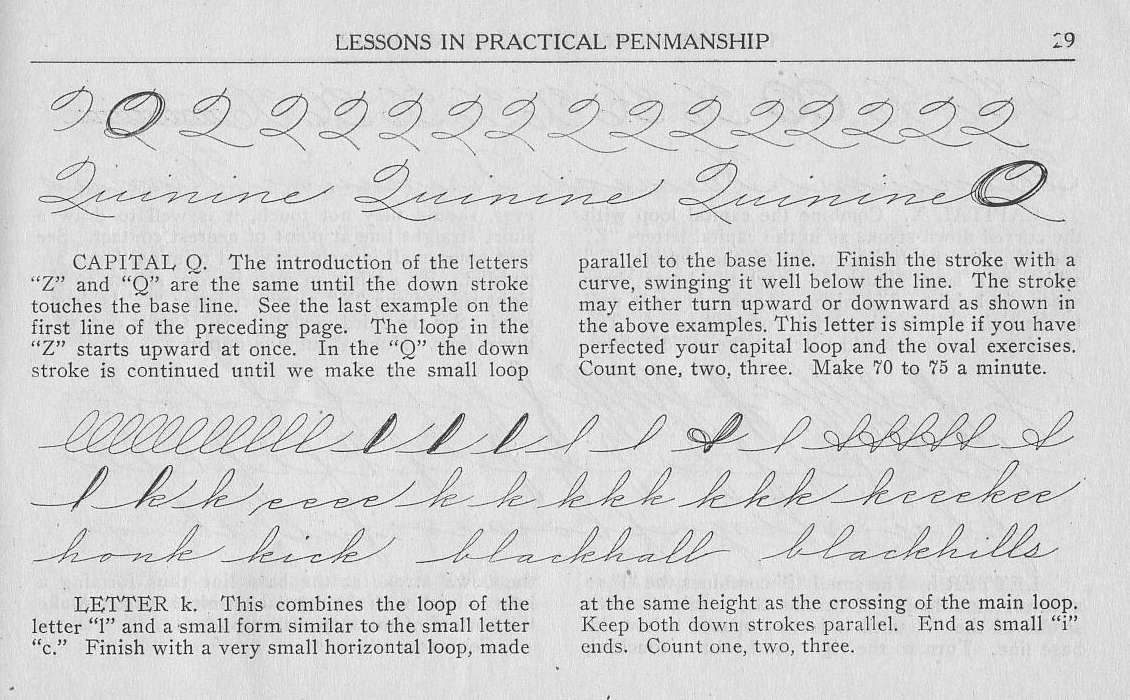 LESSONS IN PRACTICAL PENMANSHIP 29
Quinine Quinine Quinine Q
CAPITAL Q. The introduction of the letters
"Z" and "Q" are the same until the down stroke
touches the base line. See the last example on the
first line of the preceding page. The loop in the
"Z" starts upward at once. In the "Q" the down
stroke is continued until we make the small loop
parallel to the base line. Finish the stroke with a
curve, swinging it well below the line. The stroke
may either turn upward or downward as shown in
the above examples. This letter is simple if you have
perfected your capital loop and the oval exercises.
Count one, two, three. Make 70 to 75 a minute.
honk kick blackhall blackhills
LETTER k. This combines the loop of the
letter "l" and a small form similar to the small letter
"c." Finish with a very small horizontal loop, made
at the same height as the crossing of the main loop.
Keep both down strokes parallel. End as small "i"
ends. Count one, two, three.